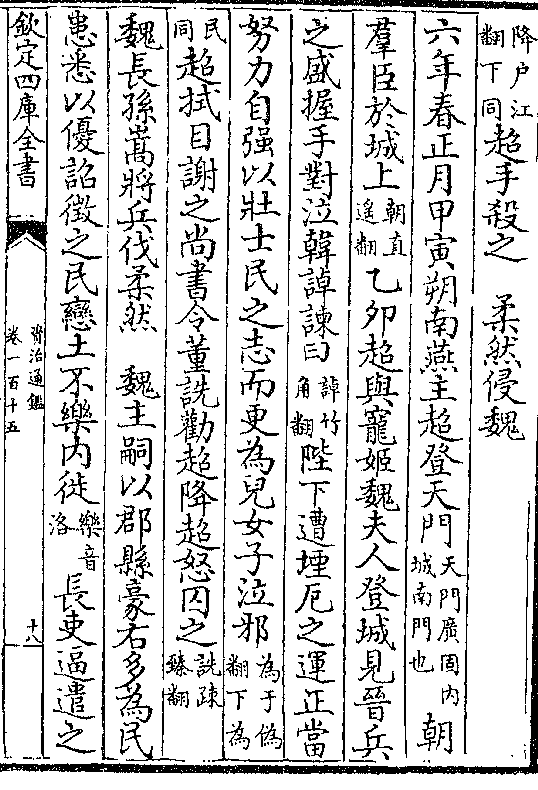 降户江翻下同超手殺之　柔然侵魏
六年春正月甲寅朔南燕主超登天門天門廣固内城南門也朝
羣臣於城上朝直遥翻乙卯超與寵姬魏夫人登城見晉兵
之盛握手對泣韓𧨳諫曰𧨳竹角翻陛下遭堙厄之運正當
努力自强以壯士民之志而更為兒女子泣邪為于偽翻下為
民同超拭目謝之尚書令董詵勸超降超怒囚之詵疎臻翻
魏長孫嵩將兵伐柔然　魏主嗣以郡縣豪右多為民
患悉以優詔徵之民戀土不樂内徙樂音洛長吏逼遣之
欽定四庫全書
資治通鑑
卷一百十五
十八